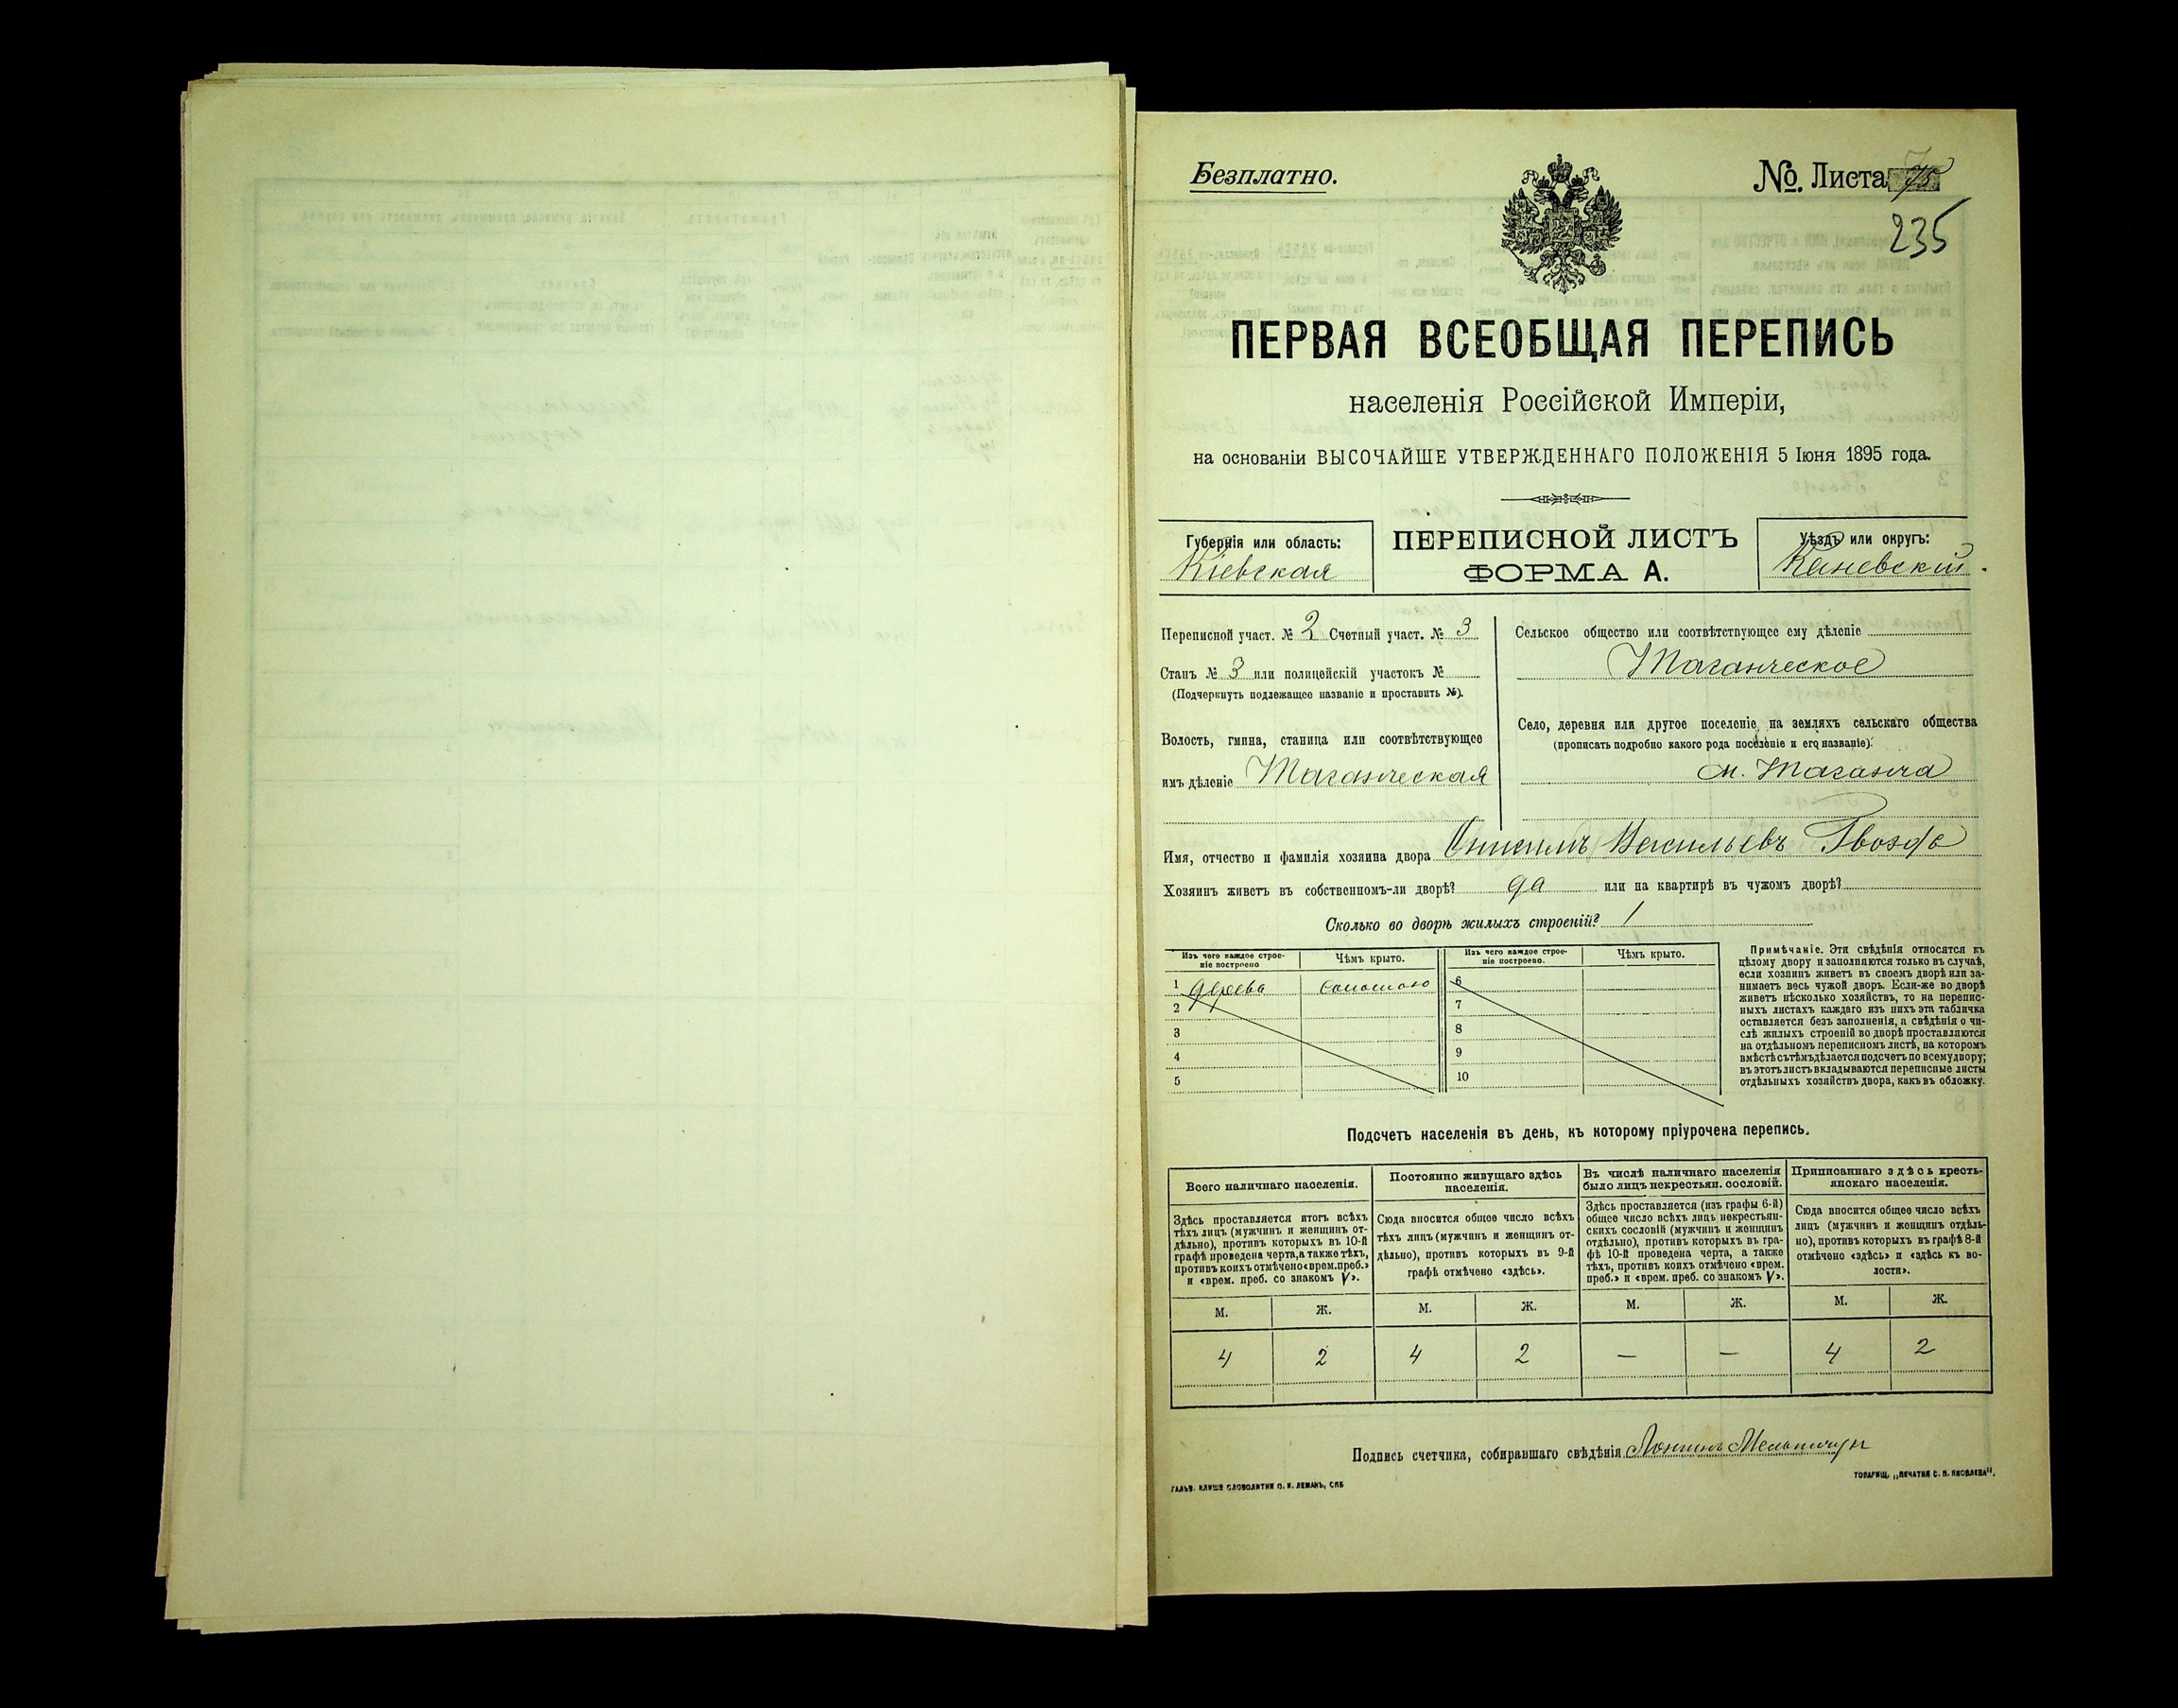 Безплатно.
No. Листа 75
235
ПЕРВАЯ ВСЕОБЩАЯ ПЕРЕПИСЬ
населенія Россійской Имперіи,
на основаніи ВЫСОЧАЙШЕ УТВЕРЖДЕННАГО ПОЛОЖЕНІЯ 5 Іюня 1895 года.
Губернія или область:
Кіевская
ПЕРЕПИСНОЙ ЛИСТЪ
ФОРМА А.
Уѣздъ или округъ:
Каневскій.
Переписной участ. № 2 Счетный участ. № 3
Станъ № 3 или полицейскій участокъ №
(Подчеркнуть подлежащее названіе и проставить №).
Волость, гмина, станица или соотвѣтствующее
имъ дѣленіе Таганческая
Сельское общество или соотвѣтствующее ему дѣленіе
Таганческое
Село, деревня или другое поселеніе на земляхъ сельскаго общества
(прописать подробно какого рода поселеніе и его названіе):
м. Таганча
Имя, отчество и фамилія хозяина двора Онисимъ Васильевъ Гвоздь
Хозяинъ живетъ въ собственномъ-ли дворѣ? да или на квартирѣ въ чужомъ дворѣ?
Сколько во дворѣ жилыхъ строеній? 1
Изъ чего каждое строе-
ніе построено
Чѣмъ крыто.
Изъ чего каждое строе-
ніе построено.
Чѣмъ крыто.
1 дерева соломою 6
2 7
3 8
4 9
5 10
Примѣчаніе. Эти свѣдѣнія относятся къ
цѣлому двору и заполняются только въ случаѣ,
если хозяинъ живетъ въ своемъ дворѣ или за-
нимаетъ весь чужой дворъ. Если-же во дворѣ
живетъ нѣсколько хозяйствъ, то на перепис-
ныхъ листахъ каждаго изъ нихъ эта табличка
оставляется безъ заполненія, а свѣдѣнія о чи-
слѣ жилыхъ строеній во дворѣ проставляются
на отдѣльномъ переписномъ листѣ, на которомъ
вмѣстѣ съ тѣмъ дѣлается подсчетъ по всему двору;
въ этотъ листъ вкладываются переписные листы
отдѣльныхъ хозяйствъ двора, какъ въ обложку.
Подсчетъ населенія въ день, къ которому пріурочена перепись.
Всего наличнаго населенія.
Постоянно живущаго здѣсь
населенія.
Въ числѣ наличнаго населенія
было лицъ некрестьян. сословій.
Приписаннаго здѣсь кресть-
янскаго населенія.
Здѣсь проставляется итогъ всѣхъ
тѣхъ лицъ (мужчинъ и женщинъ от-
дѣльно), противъ которыхъ въ 10-й
графѣ проведена черта, а также тѣхъ,
противъ коихъ отмѣчено «врем. преб.»
и «врем. преб. со знакомъ V».
Сюда вносится общее число всѣхъ
тѣхъ лицъ (мужчинъ и женщинъ от-
дѣльно), противъ которыхъ въ 9-й
графѣ отмѣчено «здѣсь».
Здѣсь проставляется (изъ графы 6-й)
общее число всѣхъ лицъ некрестьян-
скихъ сословій (мужчинъ и женщинъ
отдѣльно), противъ которыхъ въ гра-
фѣ 10-й проведена черта, а также
тѣхъ, противъ коихъ отмѣчено «врем.
преб.» и «врем. преб. со знакомъ V».
Сюда вносится общее число всѣхъ
лицъ (мужчинъ и женщинъ отдѣль-
но), противъ которыхъ въ графѣ 8-й
отмѣчено «здѣсь» и «здѣсь къ во-
лости».
М. Ж. М. Ж. М. Ж. М. Ж.
4 2 4 2 — — 4 2
Подпись счетчика, собиравшаго свѣдѣнія Лонгинъ
ГАЛЬВ. КЛИШЕ СЛОВОЛИТНИ О. И. ЛЕМАНЪ, СПБ
ТОВАРИЩ. „ПЕЧАТНЯ С. П. ЯКОВЛЕВА".